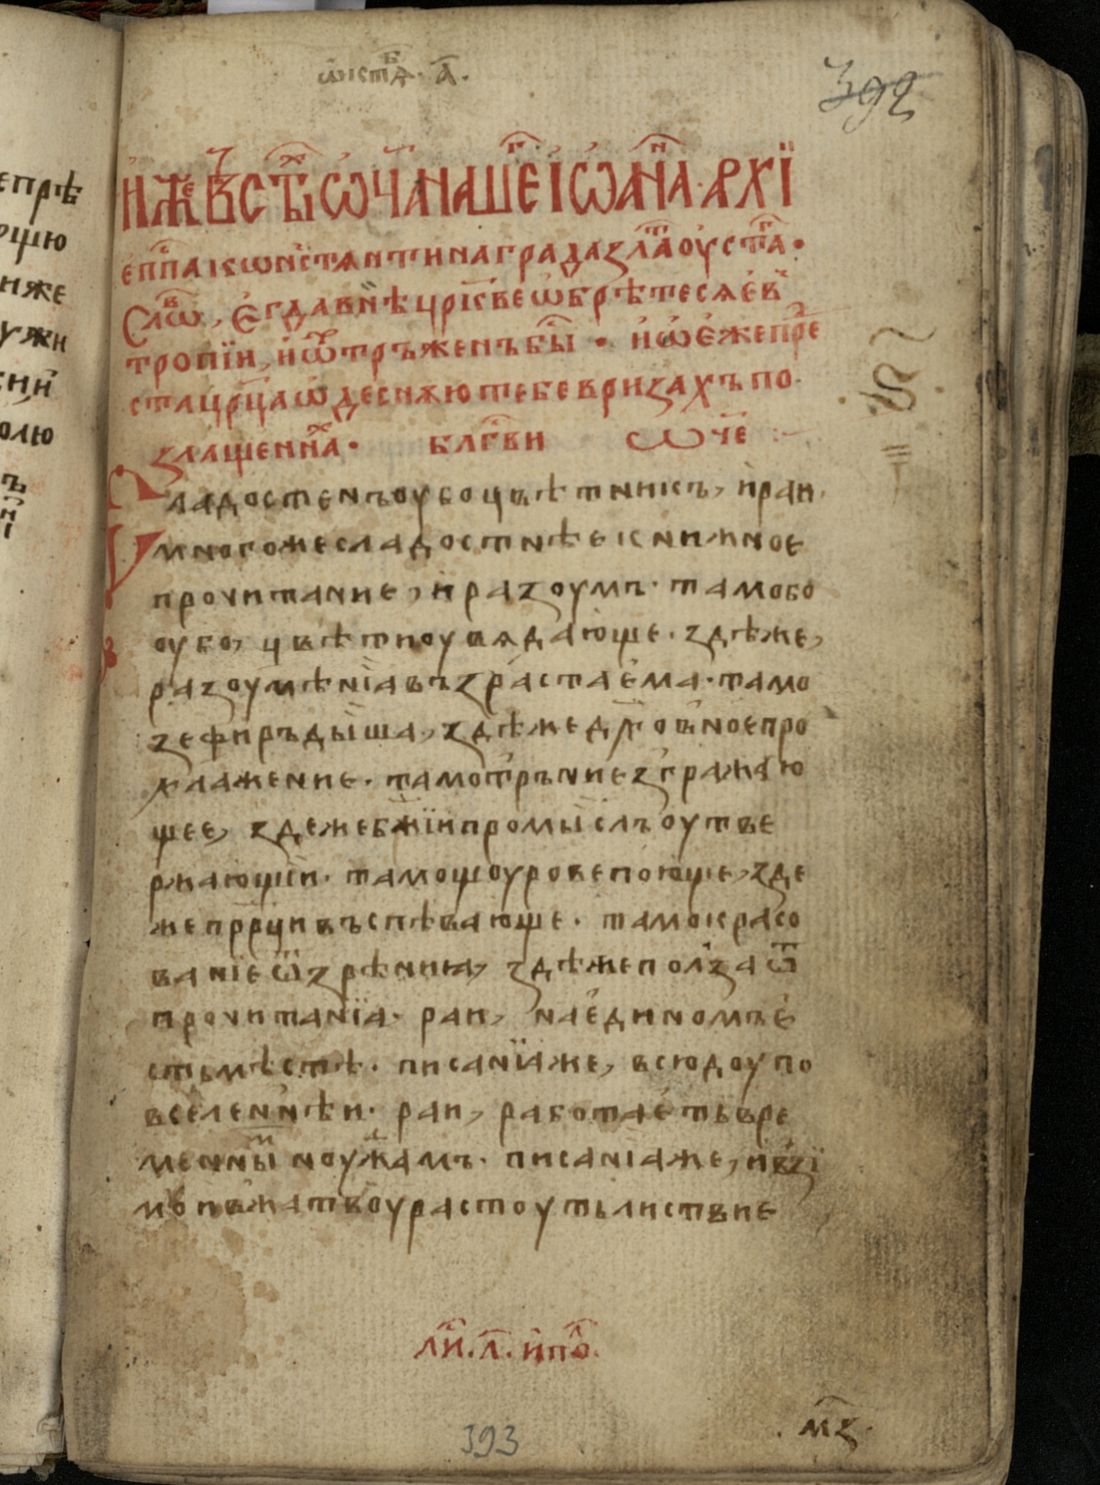 392
И҆́же въ ст҃ы́хъ ѿц҃а на́шегⷪ҇ і҆ѡа́нна. а҆рхї
е҆пⷭ҇па кѡнстѧнтинаграда злⷮаоу́стагⷪ҇.
Сло́вⷪ҇, є҆гдавнѣ црⷭ҇кве ѡ҆брѣтесѧ е҆в
тропїи, и҆ ѿтръженъ бы́ⷭ҇. и҆ ѡ҆ є҆же пре
ста црⷣ҇ца ѡ҆деснѫю тебе в ризахъ по
злащенныⷯ. блгⷭ҇ви ѡ҆ч҃е
Сладостенъ оубо цвѣтникъ, и҆ раи.
много же сладостнѣе книжное
прочитание, и҆ разоумъ. тамо бо
оубо, цвѣти оувѧдающе. здѣже,
разоумѣнїа възрастае҆ма. тамо
зефиръ дыша, здѣже дх҃овное про
хлажение. тамо тръние зграждаю
щее, здеже бж҃їи промыслъ оутве
ржающїи. тамо щоурове поюще, зде
же прⷪ҇рци въспѣвающе. тамо красо
ванїе ѿ зрѣниа, здѣже полза ѿ
прочитанїа. раи, на е҆диномъ е҆
сть мѣстѣ. писанїа же, всюдоу по
вселеннѣи. раи, работае҆ть вре
менныⷨ ноуждамъ. писанїа же, и҆ в зї
мѹ и в жатвоу растоуть листвие
393